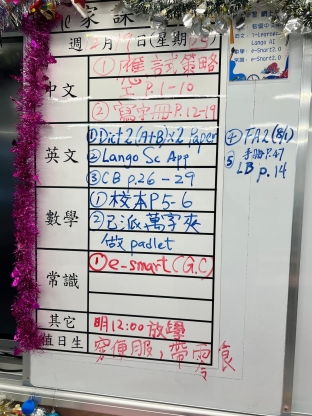 1C 家課
週 2月19日(星期
中文
① 權言式策略
P.1-10
② 寫字冊 P.12-19
英文
① Dict 2 (A+B)x2 Paper
② Lango Sc App
③ CB p.26-29
④ FA2 (8/1)
手冊 P.47
⑤ LB p.14
數學
① 校本 P5-6
② 已派萬字夾
做 padlet
常識
① e-smart (G.C)
其它
明12:00放學
值日生
穿便服，帶零食
i-Learner
Lango AI
e-smart2.0
e-smart2.0